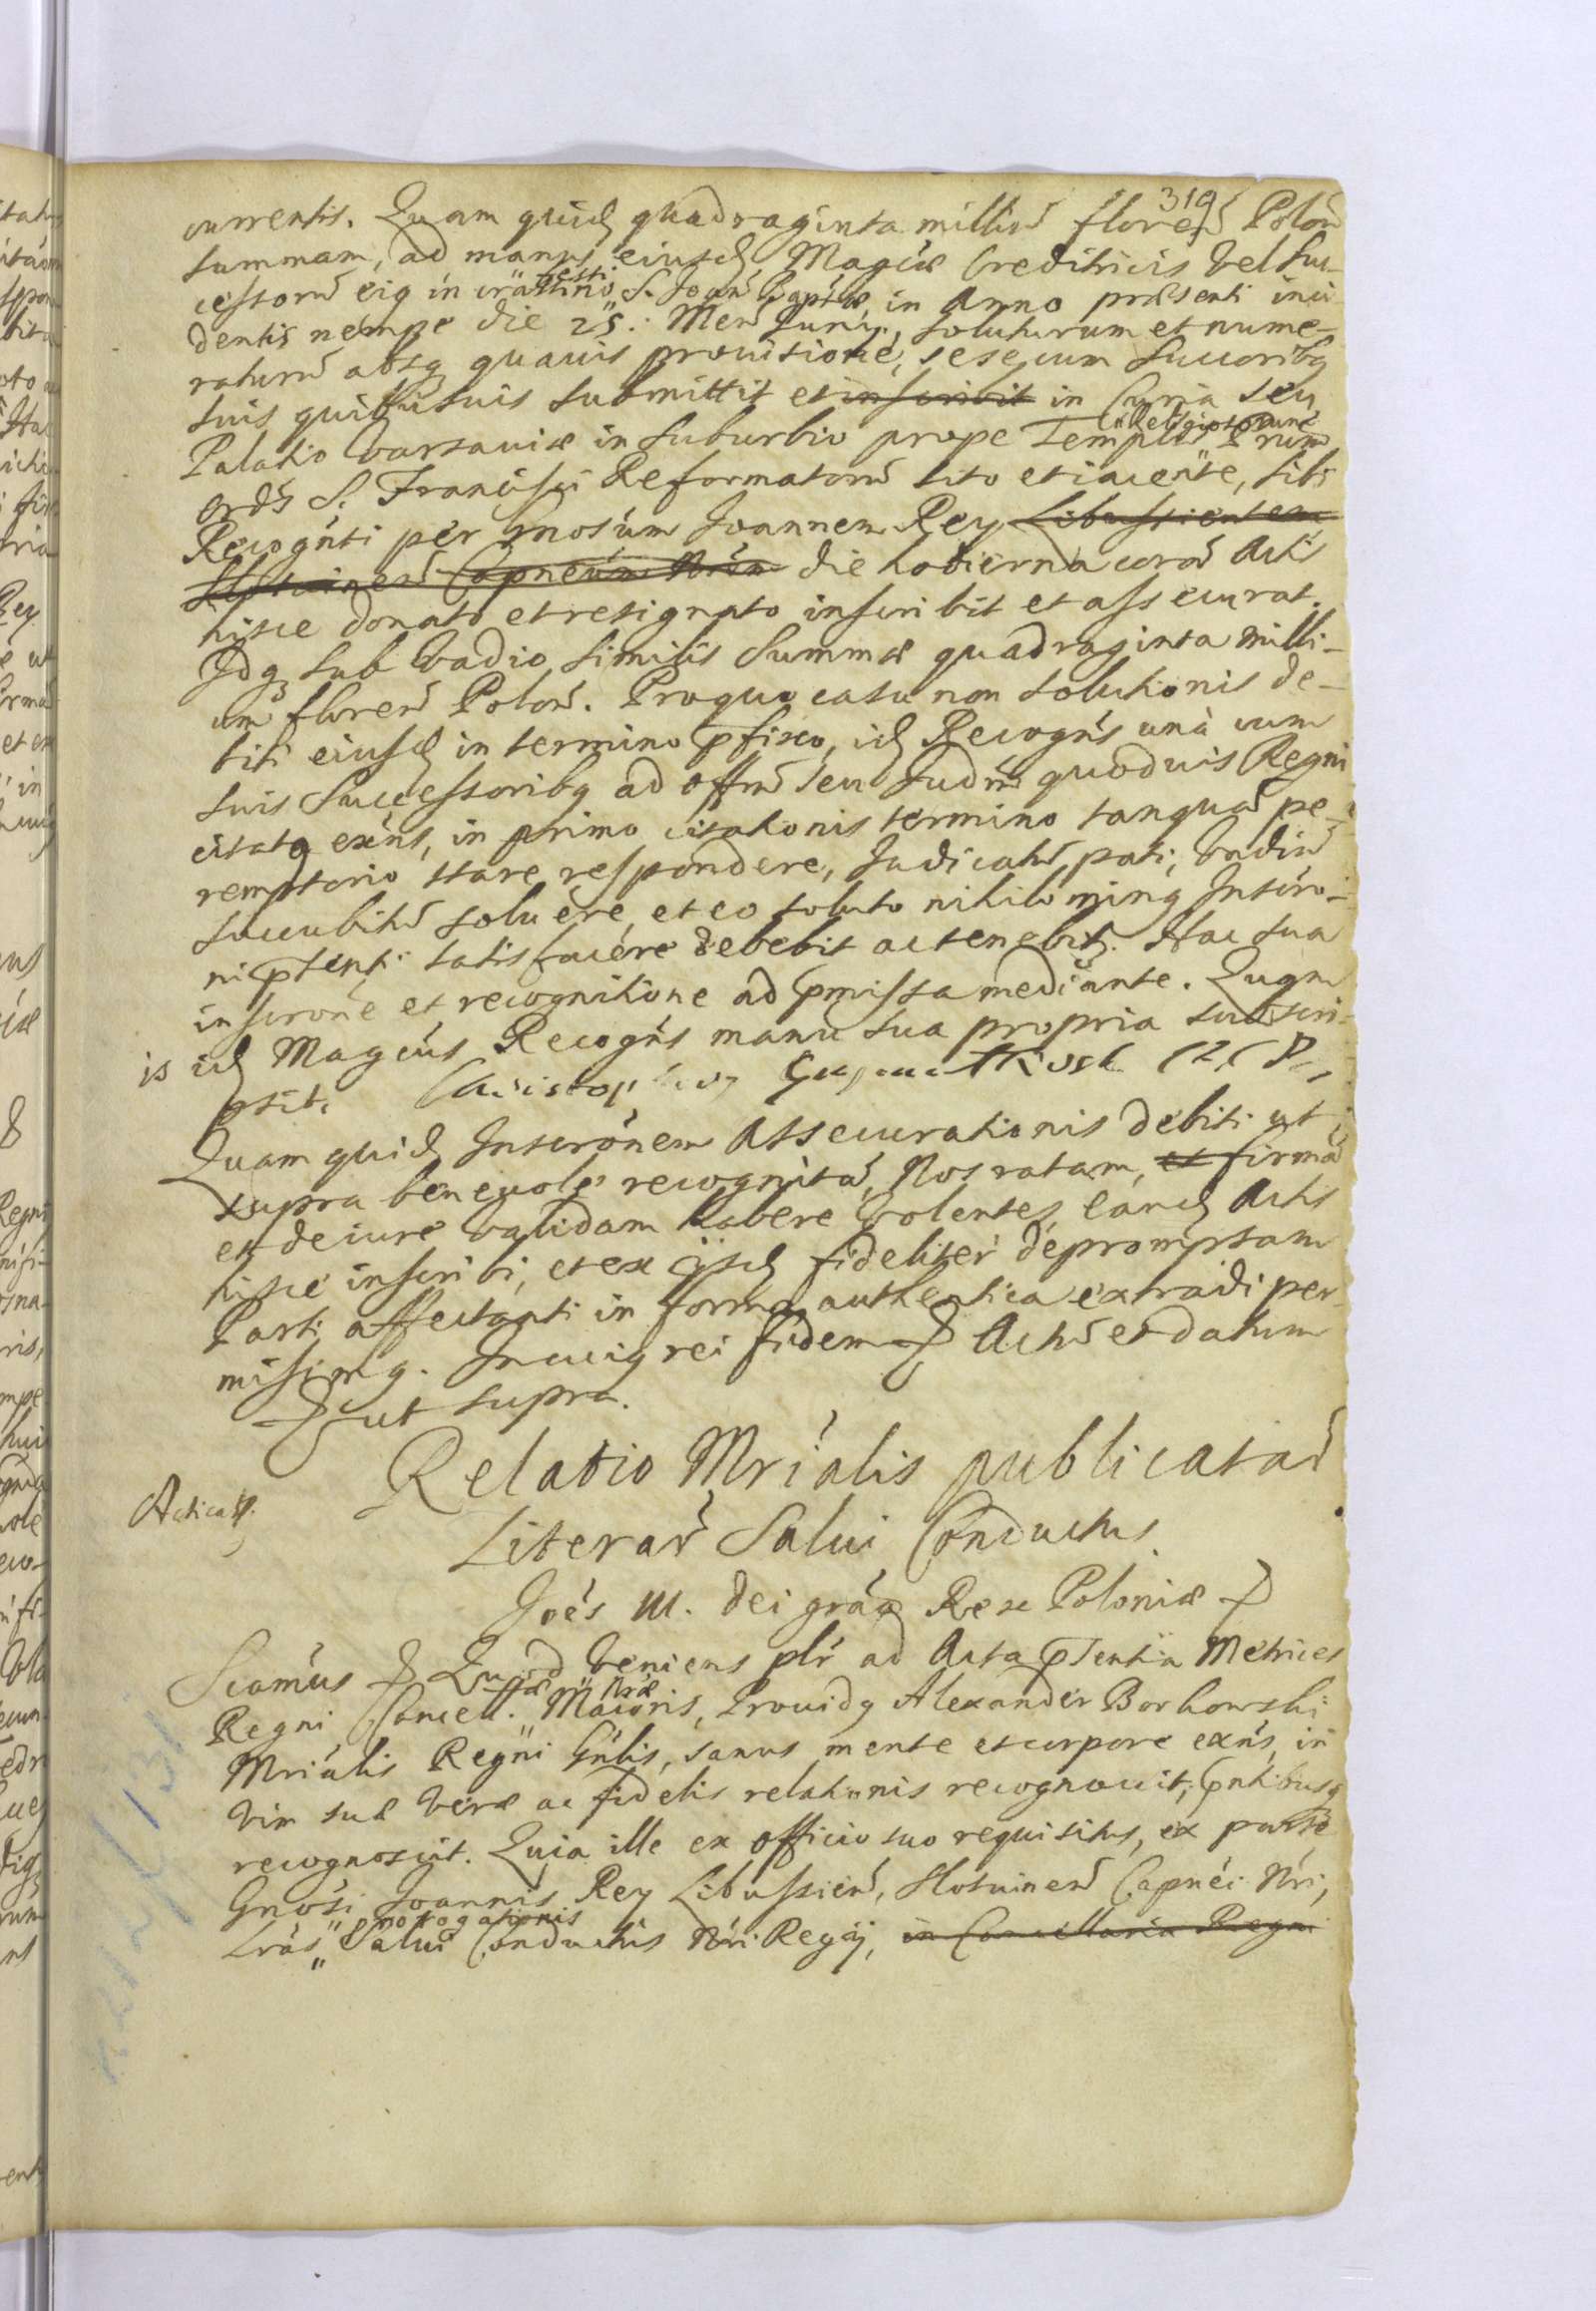 319
currentis. Quam quid quadraginta milliu floren Polon
summam, ad manus eiusd Magcæ Creditricis vel Suc-
cessoru eiq in crastino festi S. Joan Baptæ, in Anno præsenti inci
dentis nempe die 25. Men Junij, soluturum et nume-
raturu absq quauis prouisione, sese cum Succoribq
suis quibusuis submittit et inscribit in Curia seu
Palatio Varsauiæ in Suburbio prope Templu Religiosorum Prum
Ordis S. Francisci Reformatoru sito et iacente, sibi
Recognti per Gnosum Joannem Rey Libussientem
Capneum Nrum die hodierna cora Actis
hisce donato et resignato inscribit et assecurat.
Idq sub Vadio similis Summæ quadraginta milli-
um floren Polon. Pro quo casu non solutionis de-
biti eiusd in termino pfixo, id Recogns unà cum
suis Successoribq ad offm seu Judm quoduis Regni
citatq exns, in primo citationis termino tanqua pe-
remptorio stare respondere, Judicatu pati, Vadiu
succubitu soluere, et eo soluto nihilominq Inscro-
ni pstenti satisfacere debebit ac tenebit. Hac sua
inscrone et recognitione ad pmissa mediante. Quam
is id Magcus Recogns manu sua propria subscri-
psit.
Quam quid Inscronem Assecurationis debiti ut
supra beneuole recognita, Nos ratam, et firma
et de iure validam habere volentes, eand Actis
hisce inscribi, et ex ijsd fideliter depromptam
Parti affectanti in forma authentica extradi per-
misimq. In cuiq rei fidem Actu et datum
ut supra.
Relatio Mrialis publicatar
Acticat.
Literar Salui Conductus
Joes III. Dei gráa Rex Poloniæ
Scamus Quod veniens plr ad Acta psentia Metrices
Regni Cancell. Maioris, Prouidq Alexander Borkowski
Mrialis Regni Gnlis, sanus mente et corpore exns, in
vim suæ veræ ac fidelis relationis recognouit, pntibusq
recognoscit. Quia ille ex officio suo requisitus, ex parte
Gnosi Joannis Rey Libussien, Hosuinen Capnei Nri,
Lras prorogationis Salui Conductus Nri Regij, in Cancellaria Regni